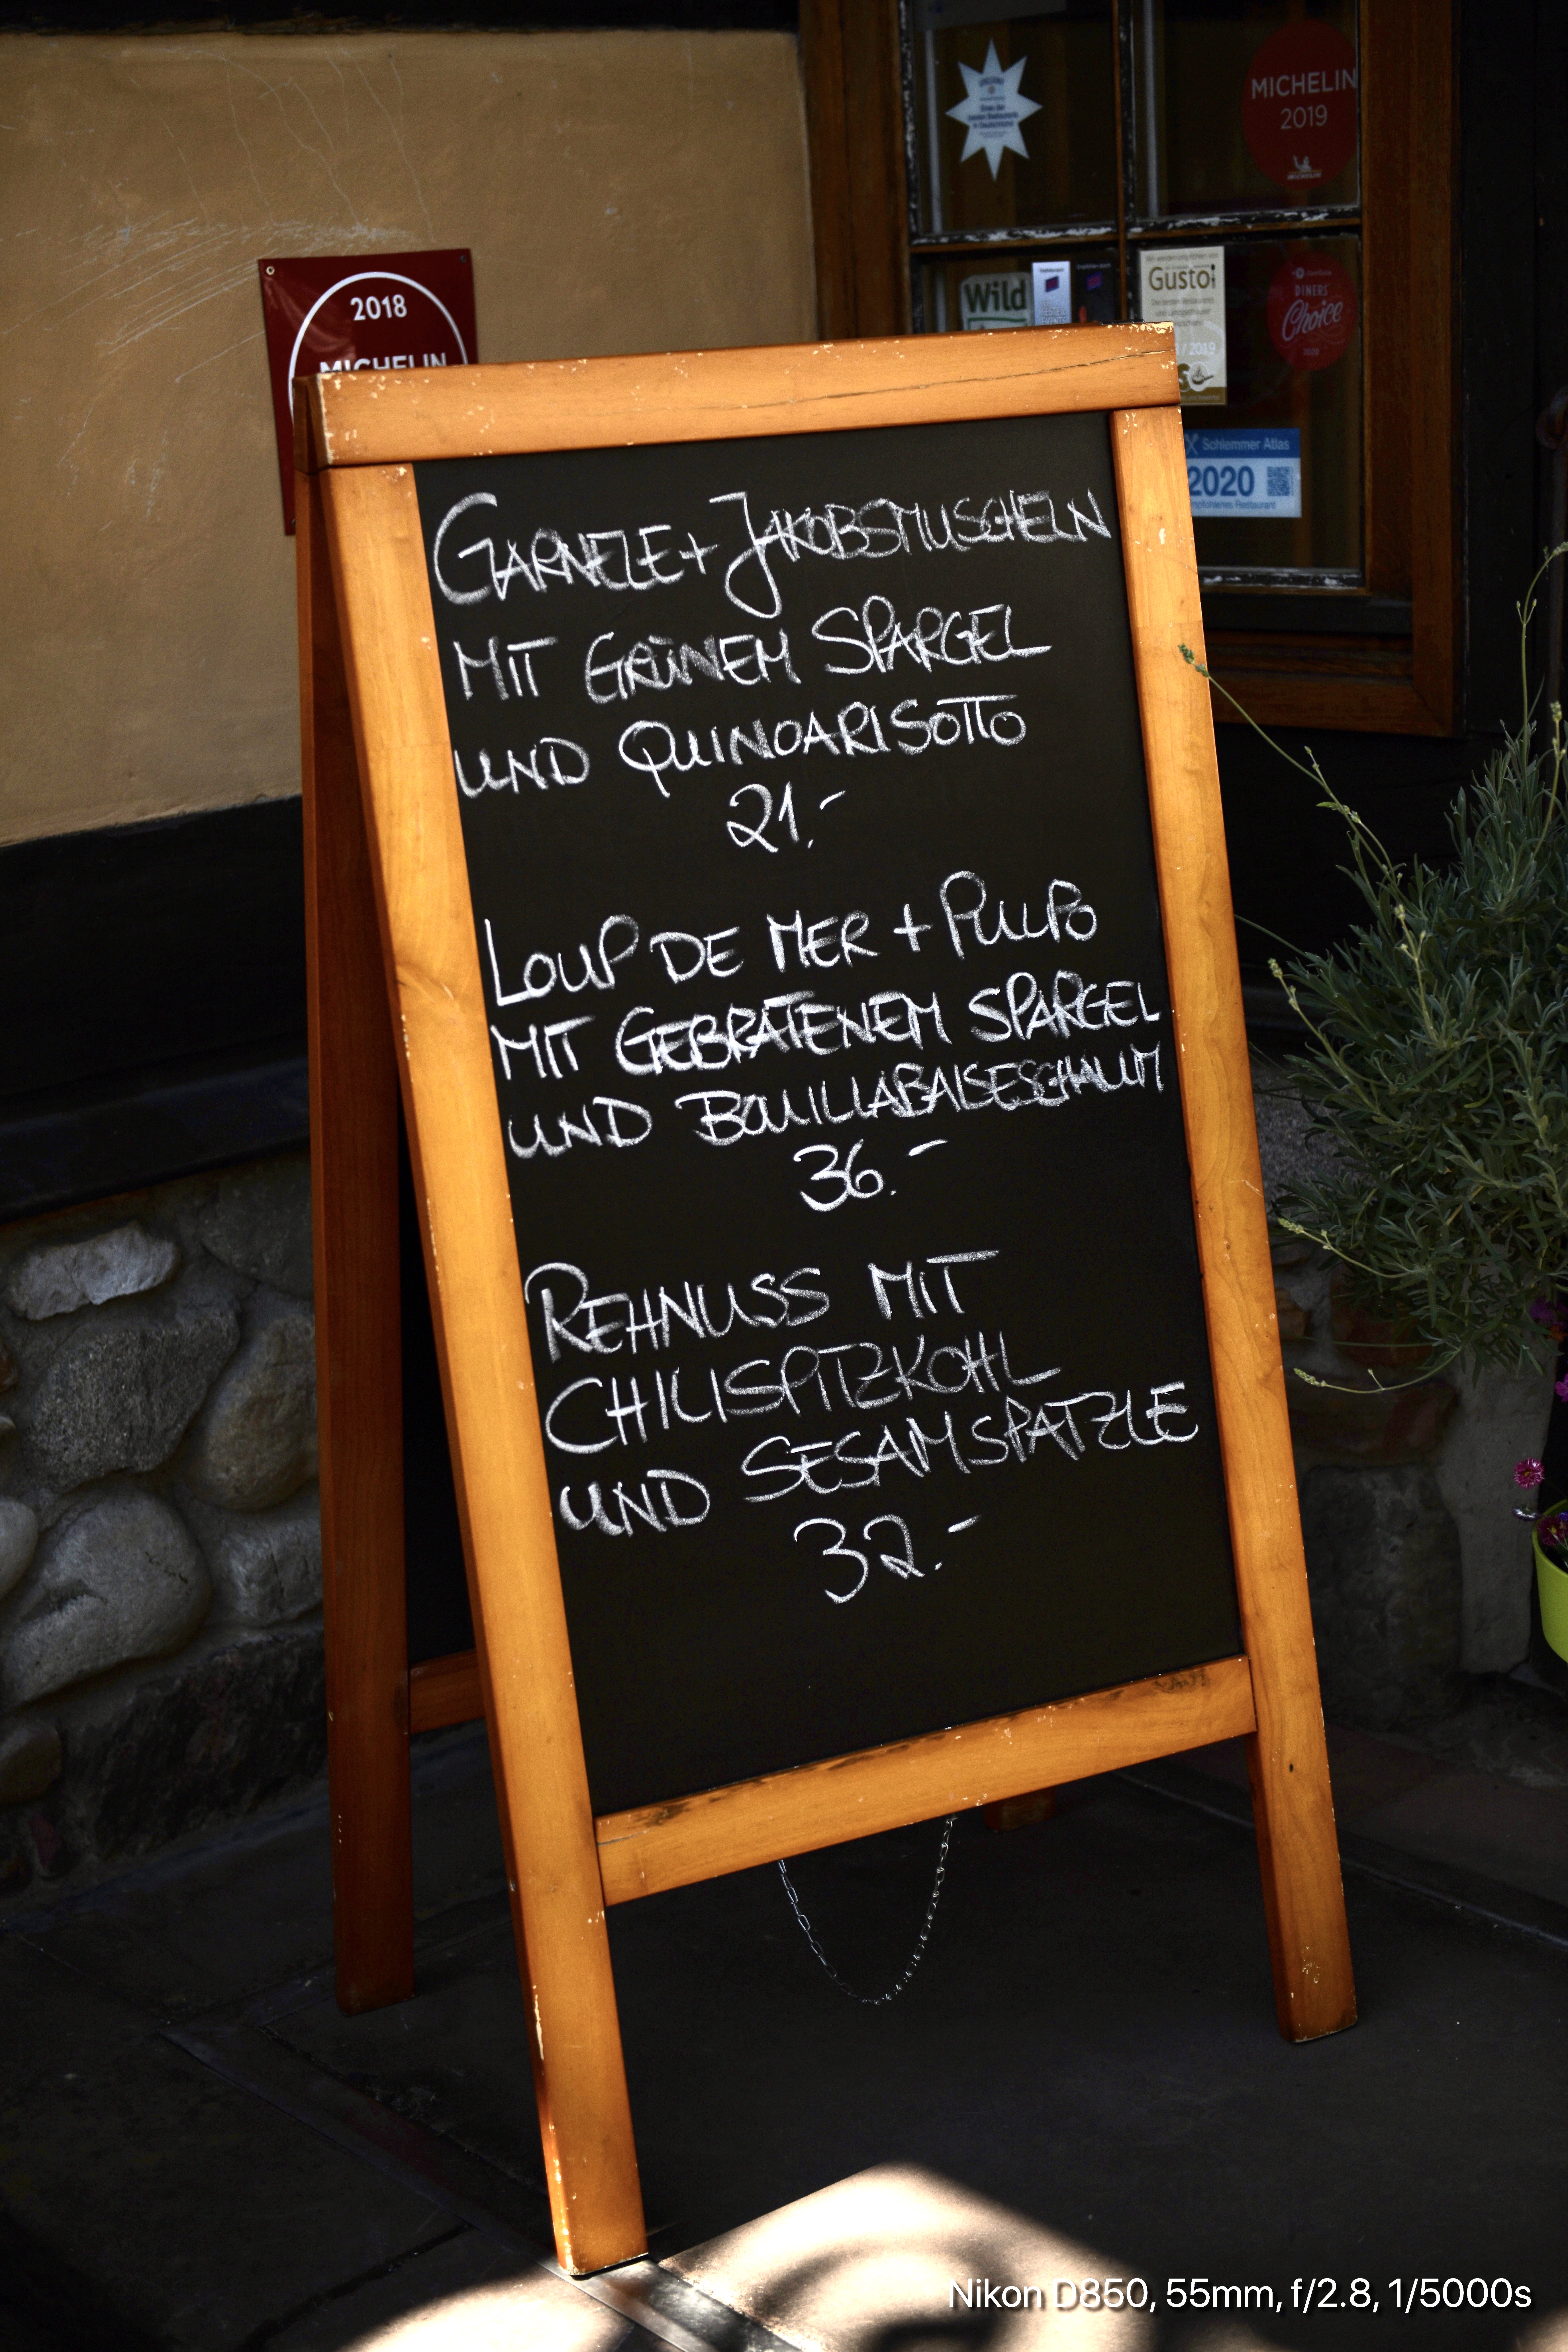 MICHELIN
2019
MICHELIN
2018
MICHELIN
Wild
Gusto
/ 2019
DINERS'
Choice
2020
Schlemmer Atlas
2020
GARNELE + JAKOBSMUSCHELN
MIT GRÜNEM SPARGEL
UND QUINOARISOTTO
21.-
LOUP DE MER + PULPO
MIT GEBRATENEM SPARGEL
UND BOUILLABAISESCHAUM
36.-
REHNUSS MIT
CHILISPITZKOHL
UND SESAMSPATZLE
32.-
Nikon D850, 55mm, f/2.8, 1/5000s